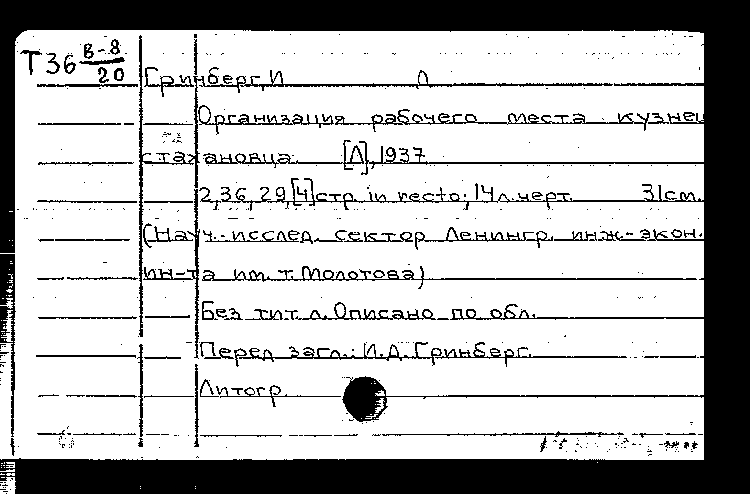 Т36 В-8/20
Гринберг, И Л
Организация рабочего места кузнец
стахановца. [Л], 1937
2,36,29,[4]стр. in recto; 14л.черт. 31см.
(Науч.-исслед. сектор Ленингр. инж.-экон.
ин-та им. т. Молотова)
Без тит. л. Описано по обл.
Перед загл.: И.Д. Гринберг.
Литогр.